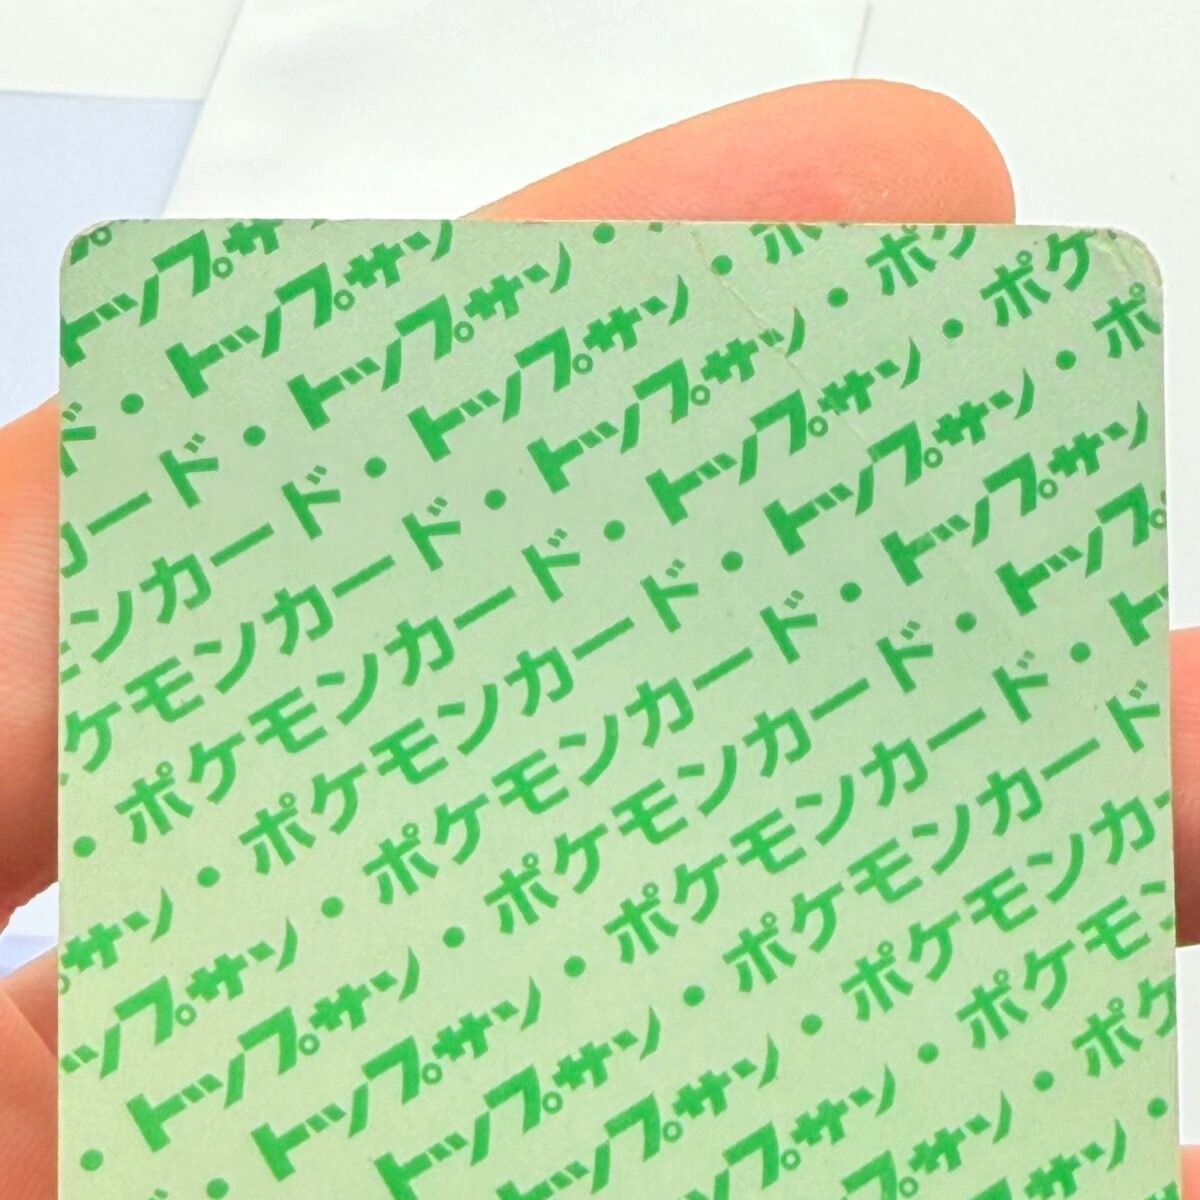 トップサ
ド・トップサン
カード・トップサン・
ンカード・トップサン・ポ
ケモンカード・トップサン・ポケ
・ポケモンカード・トップサン・ポケ
サン・ポケモンカード・トップサン・ポ
ップサン・ポケモンカード・トップサン
・トップサン・ポケモンカード・トップ
・トップサン・ポケモンカード・ト
トップサン・ポケモンカード
トップサン・ポケモンカー
ップサン・ポケモン
プサン・ポケ
サン・